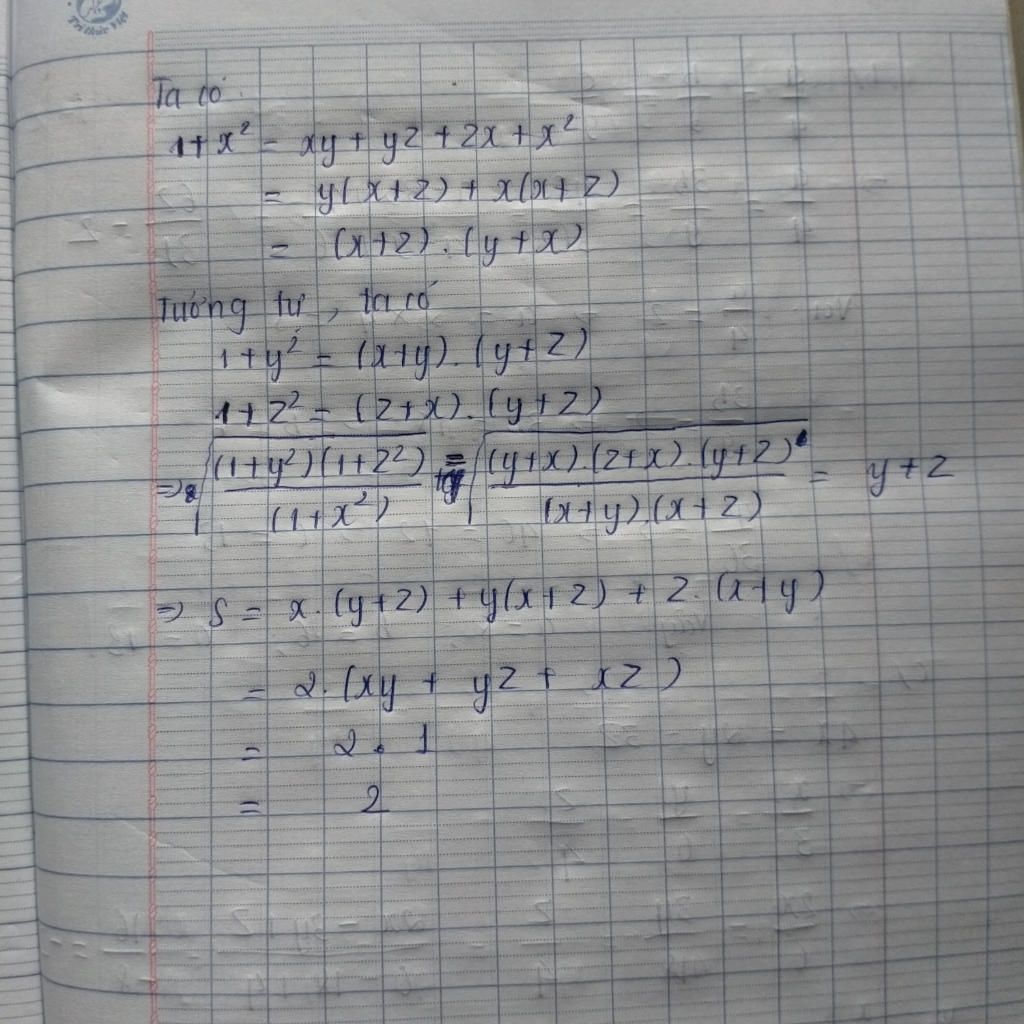 Trí thức Việt
Ta có
1+x² = xy + yz + zx + x²
= y(x+z) + x(x+z)
= (x+z).(y+x)
Tương tự, ta có
1+y² = (x+y).(y+z)
1+z² = (z+x).(y+z)
=> √((1+y²)(1+z²)/(1+x²)) = √((y+x).(z+x).(y+z)²/((x+y).(x+z))) = y+z
=> S = x.(y+z) + y(x+z) + z.(x+y)
= 2.(xy + yz + xz)
= 2.1
= 2